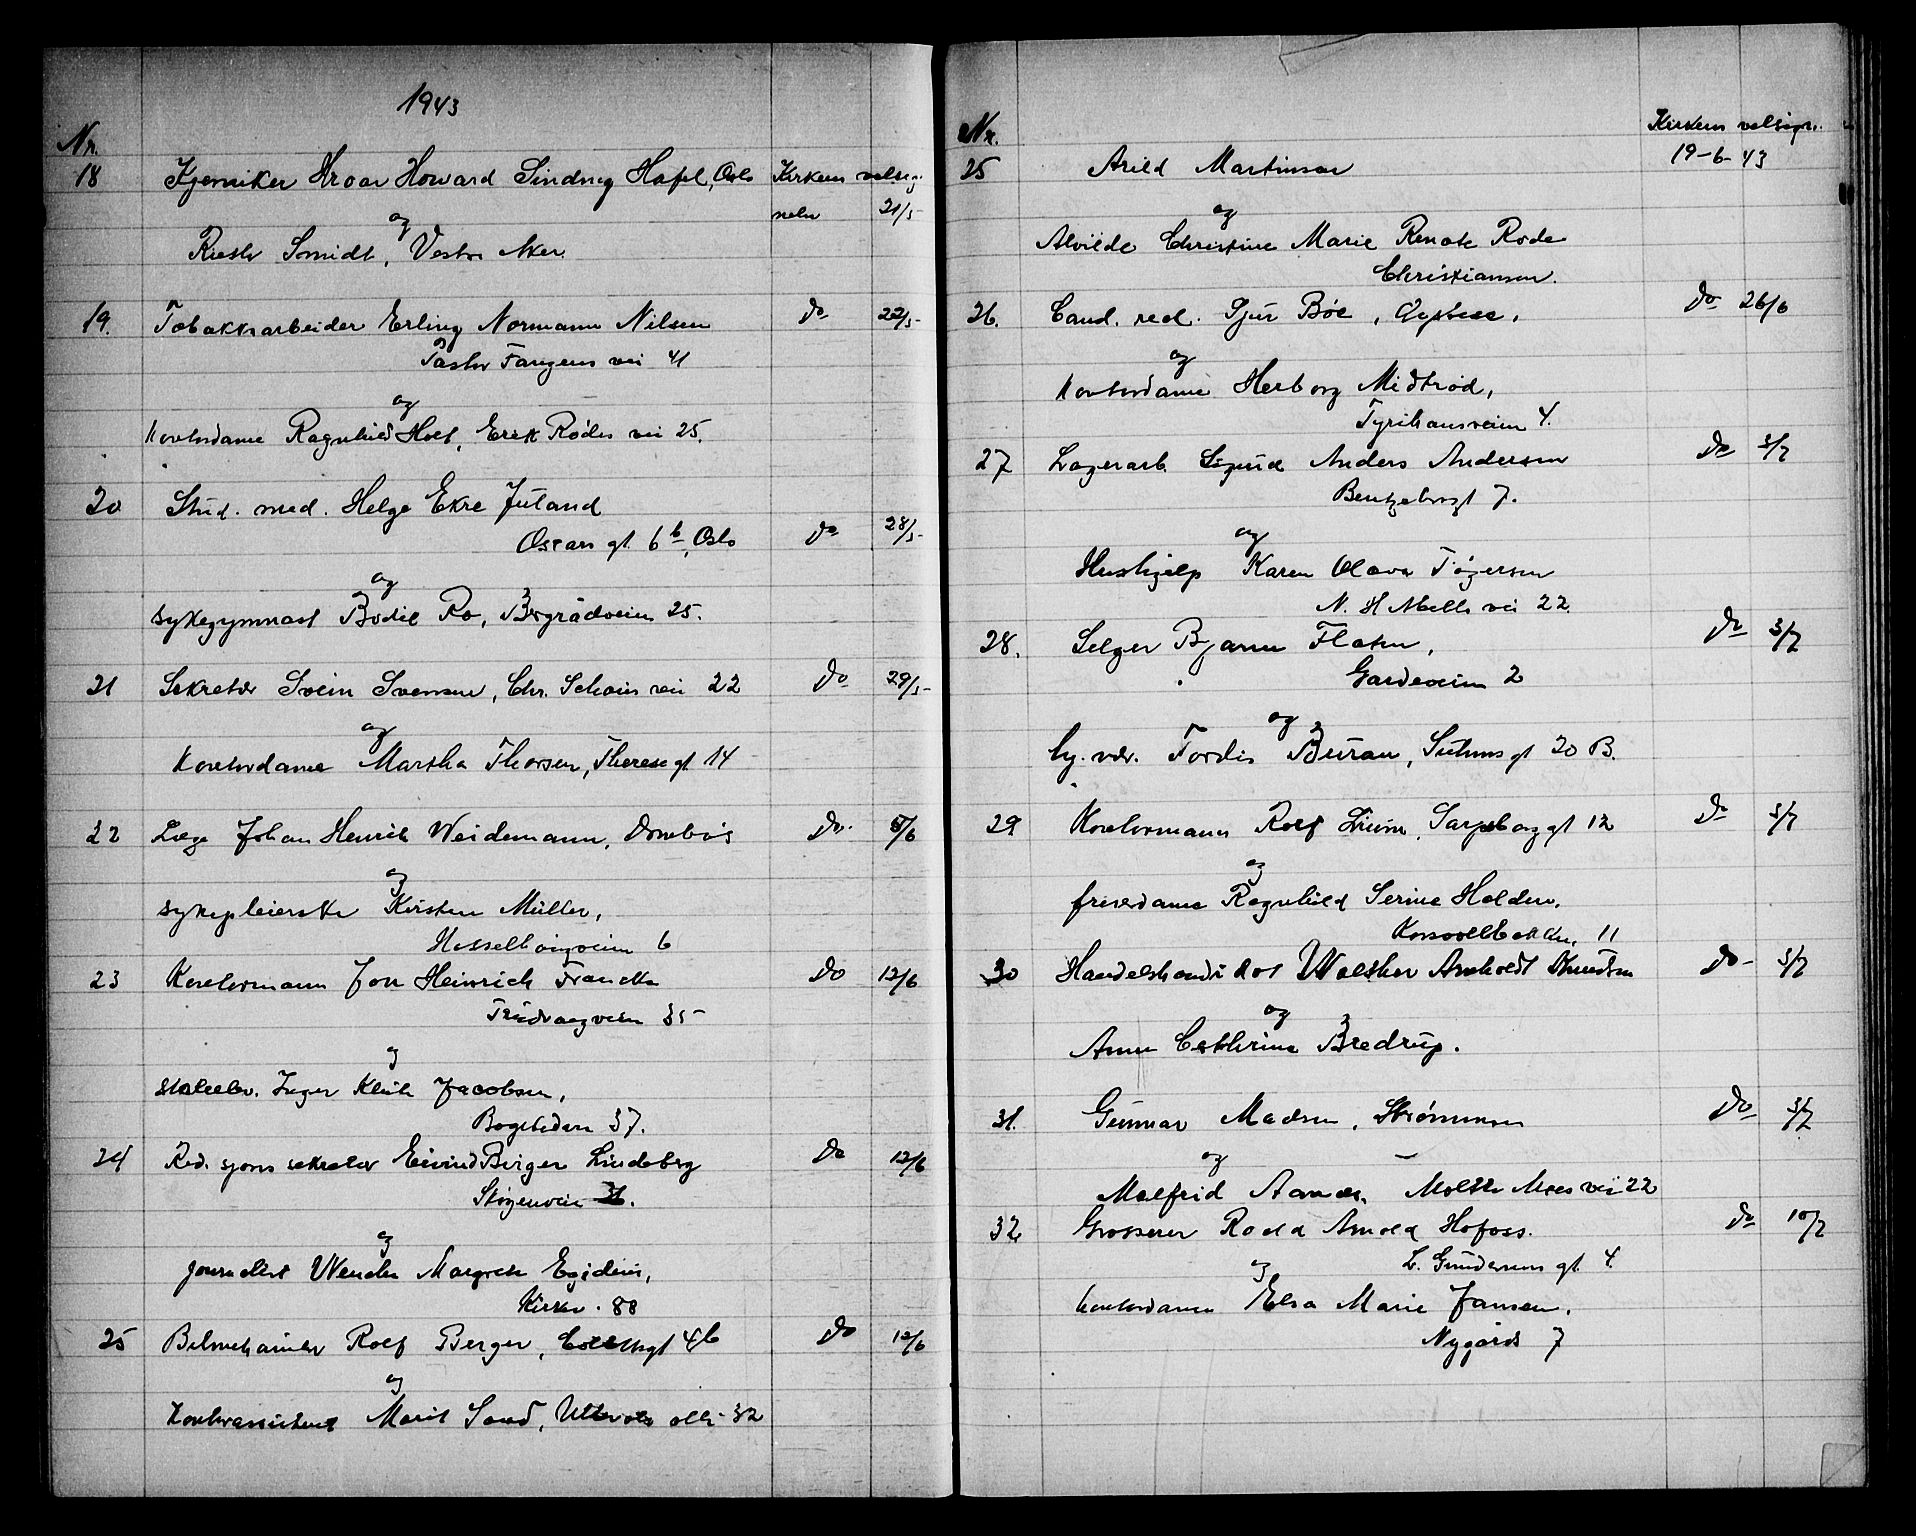 1943
Nr.
18 Kjemiker Hroar Howard Sinding Hafel, Oslo Kirkens velsig-
nelse 21/5
og
Smidt, Vestre Aker.
19. Tobakksarbeider Erling Normann Nilsen do 22/5
Pastor Fangens vei 41
og
Kontordame Ragnhild Holt, Erik Rødes vei 25.
20 Stud. med. Helge Ekre Juland
Oscars gt. 6b, Oslo do 28/5
og
sykegymnast Bodil Ro, Bergrådveien 25.
21 Sekretær Svein Svensson, Chr. Schous vei 22 do 29/5
og
Kontordame Martha Thorsen, Therese gt 14
22 Læge Johan Henrik Weidemann, Dombås do. 5/6
og
sykepleierske Kirsten Müller,
Hasselhaugveien 6
23 Kontormann Jon Heinrich Francke do 12/6
35
og
Inger Jacobsen,
37.
24 Red. sjons sekretær Eivind Birger Lindeberg do 12/6
og
journalist Wenche Margrete Egidius,
Kirkev. 88
25 Rolf Berger, 46 do 12/6
og
Marit Sand, Ullevåls alle 32
Nr. Kirkens velsign.
19-6-43
25 Arild Martinsen
og
Alvilde Christine Marie Renate Rode
Christiansen.
26. Cand. real. Gjur Bøe, do 26/6
og
Kontordame Herborg Midtrød,
Tyrihansveien 4.
27 Lagerarb. Sigurd Anders Andersen do 3/7
Bentsebrogt 7.
og
Hushjelp Karen Olava Tøgersen
vei 22
28. Selger Bjarne Flaten, do 3/7
Gardeveien 2
og
Tordis Buran, gt 20 B.
29 Kontormann Rolf Lium, Sarpsborg gt 12 do 3/7
og
frisørdame Ragnhild Serine Holden.
Korsvollbakken 11
30 Handelskandidat Walther Arnholdt Knudsen do 3/7
og
Anne Cathrine Bredrup.
31. Gunnar Madsen, Strømmen do 3/7
og
Malfrid Moltke Moes vei 22
32. Grosserer Arnold Hofoss. do 10/7
L. Gundersens gt. 4.
og
kontordame Elsa Marie Jansen.
Nygårds 7